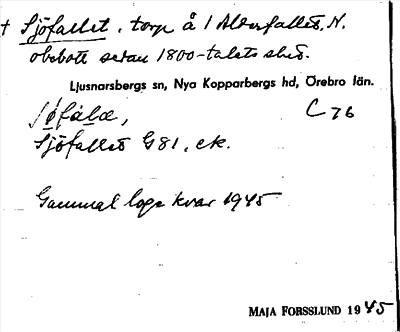 † Sjöfallet, torp å 1 Alverfallet, N.
obebott sedan 1800-talets slut.
Ljusnarsbergs sn, Nya Kopparbergs hd, Örebro län.
C 76
Sjöfallet G 81, ek.
Gammal loge kvar 1945
MAJA FORSSLUND 1945